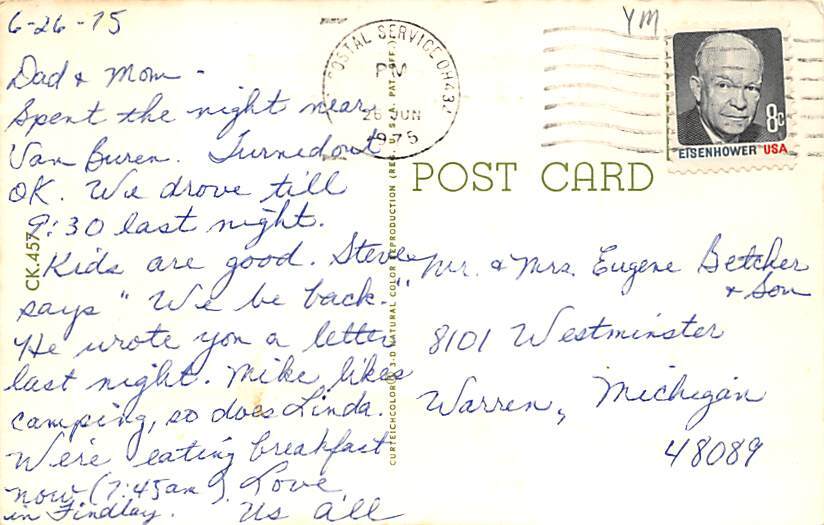 6-26-75
Dad & Mom -
Spent the night near
Van Buren. Turned out
OK. We drove till
9:30 last night.
Kids are good. Steve
says "We be back."
He wrote you a letter
last night. Mike likes
camping, so does Linda.
We're eating breakfast
now (7:45am). Love
in Findlay. Us all
CK.457
CURTEICHCOLOR® 3-D NATURAL COLOR REPRODUCTION (REG. U.S.A. PAT. OFF.)
POSTAL SERVICE OH 43
PM
26 JUN
1975
YM
8c
EISENHOWER USA
POST CARD
Mr. & Mrs. Eugene Betcher
& Son
8101 Westminster
Warren, Michigan
48089